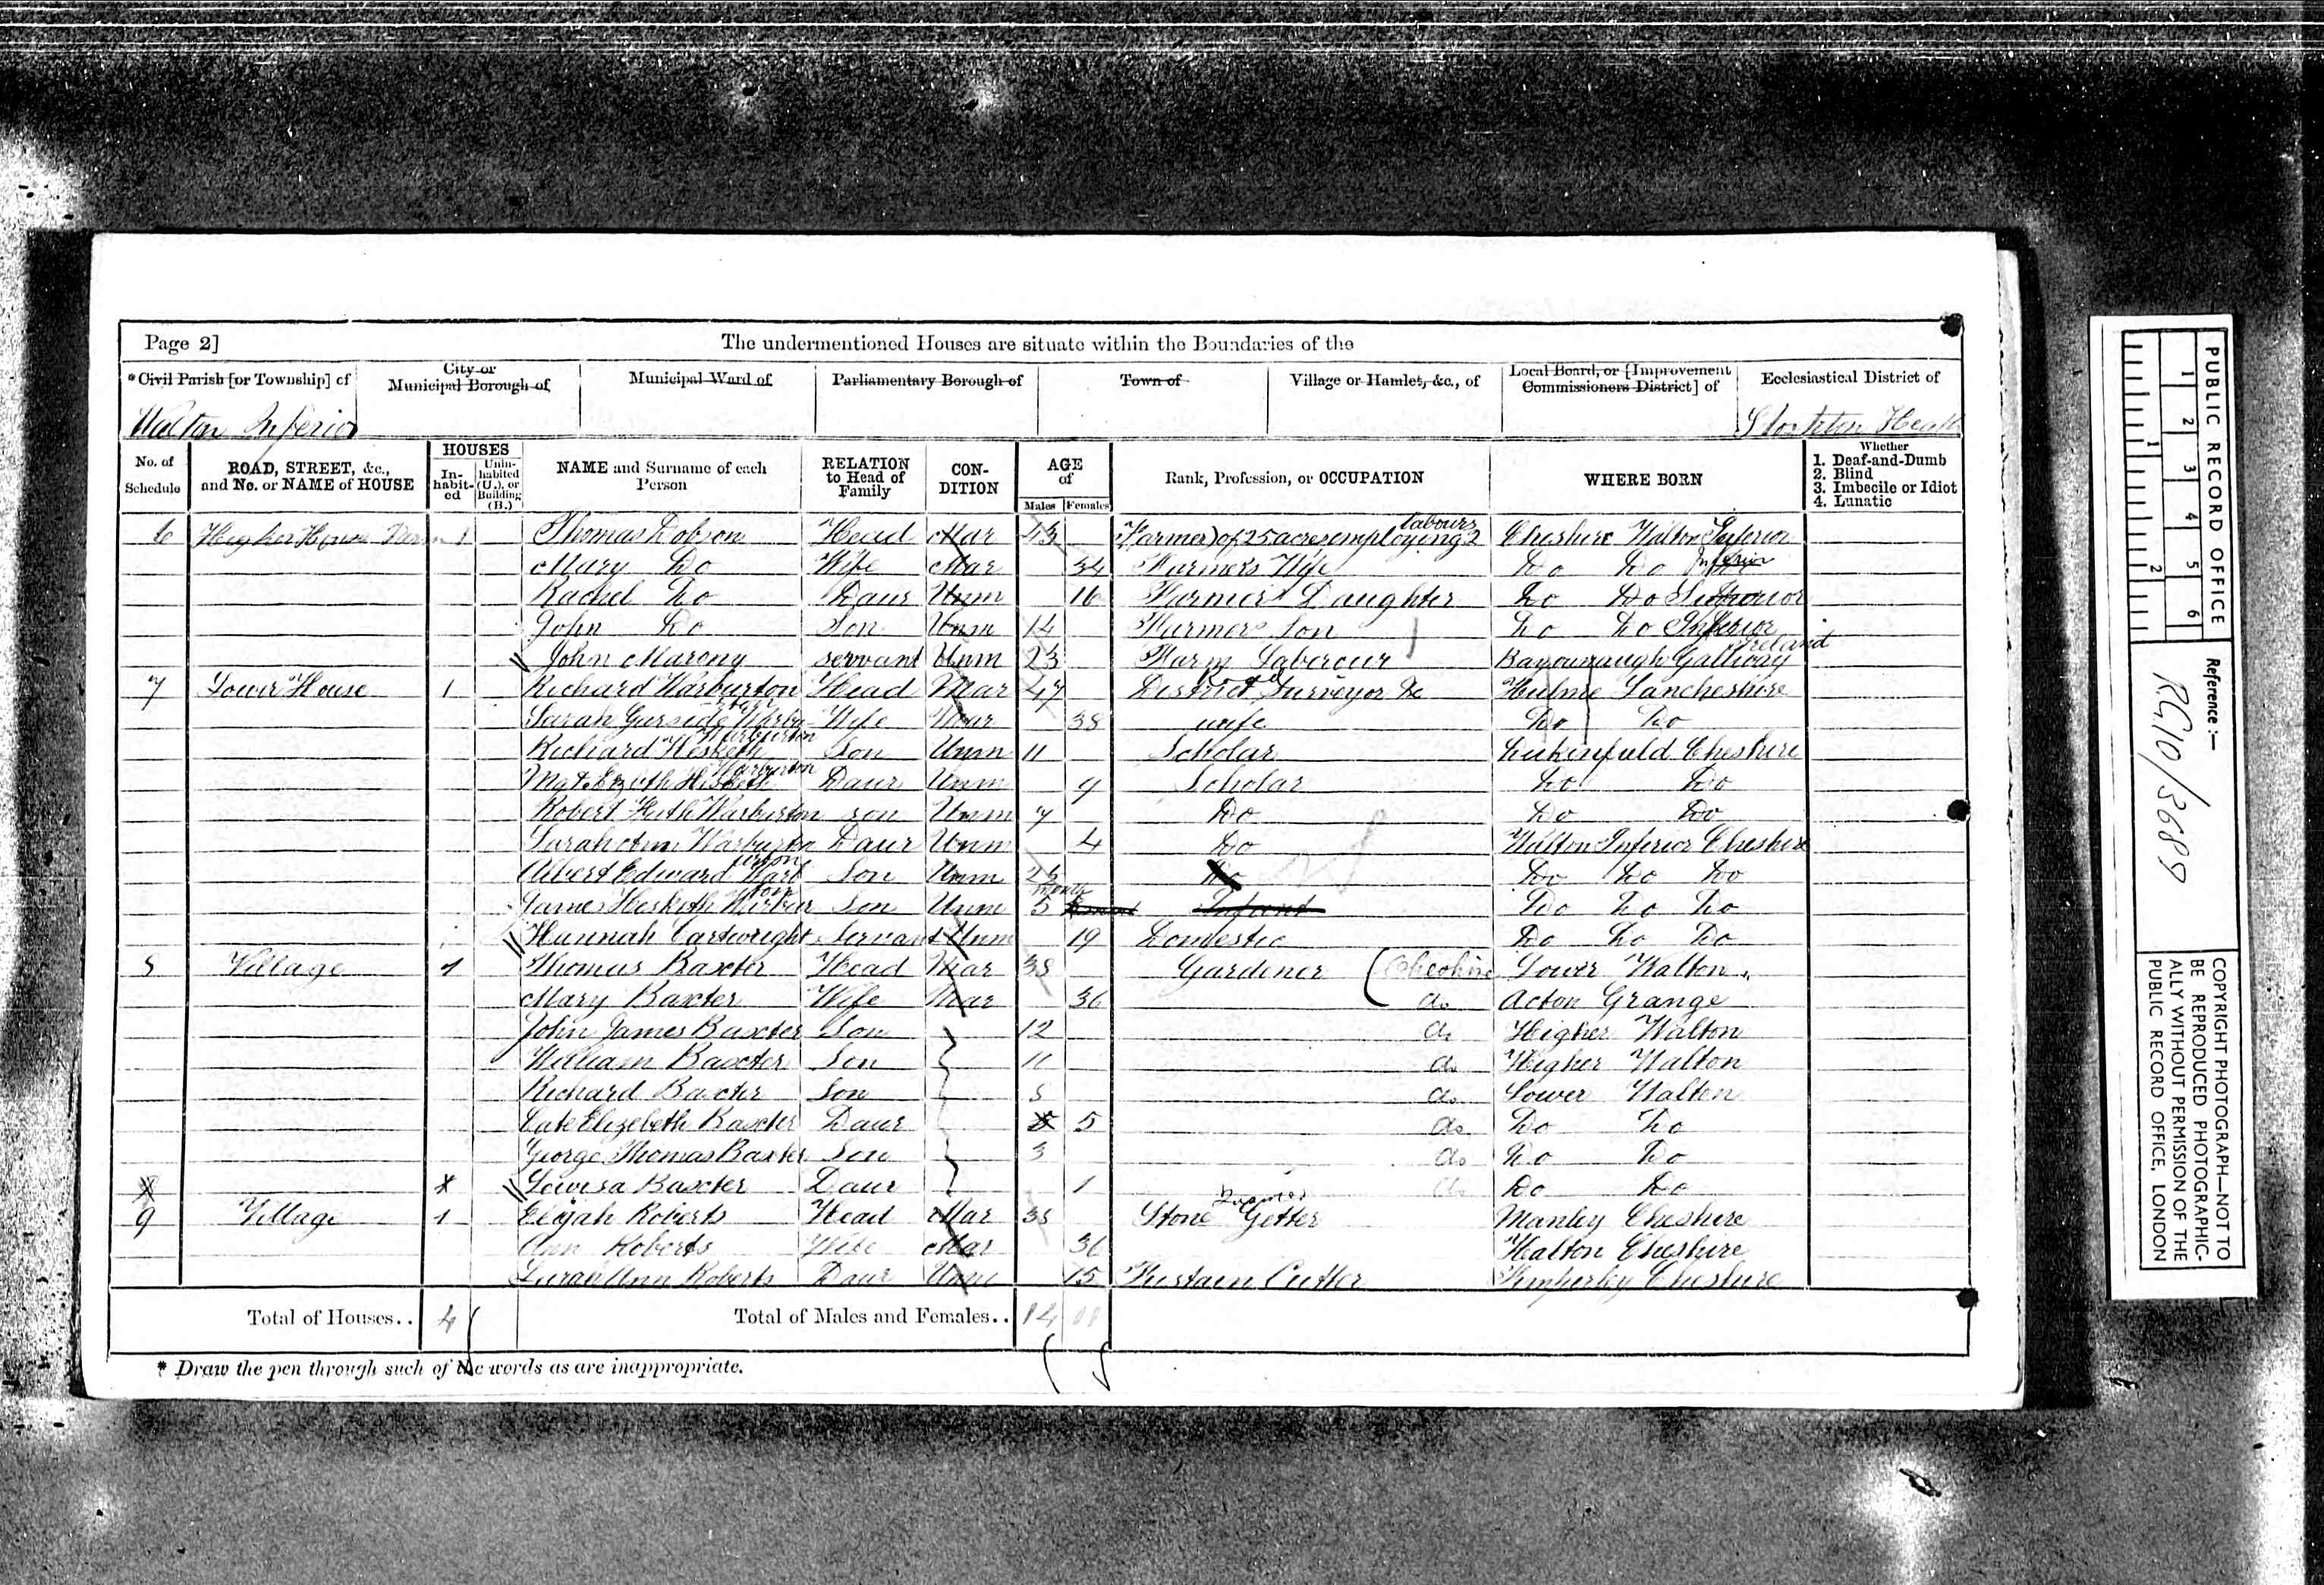 Page 2] The undermentioned Houses are situate within the Boundaries of the
*Civil Parish [or Township] of City or Municipal Borough of Municipal Ward of Parliamentary Borough of Town of Village or Hamlet, &c., of Local Board, or [Improvement Commissioners District] of Ecclesiastical District of
Walton Inferior Stockton Heath
No. of Schedule ROAD, STREET, &c., and No. or NAME of HOUSE HOUSES In-habit-ed Unin-habited (U.), or Building (B.) NAME and Surname of each Person RELATION to Head of Family CON-DITION AGE of Males Females Rank, Profession, or OCCUPATION WHERE BORN Whether 1. Deaf-and-Dumb 2. Blind 3. Imbecile or Idiot 4. Lunatic
6 Higher House 1 Thomas Dobson Head Mar 43 Farmer of 25 acres employing 2 labours Cheshire Walton Inferior
Mary Do Wife Mar 34 Farmers Wife Do Do Inferior
Rachel Do Daur Unm 16 Farmers Daughter Do Do
John Do Son Unm 14 Farmers Son Do Do Inferior
John Marony servant Unm 23 Farm Labercur Galliway Ireland
7 Lower House 1 Richard Warburton Head Mar 47 District Road Surveyor &c Hulme Lancheshire
Sarah Garside Warburton Wife Mar 38 wife Do Do
Richard Hesketh Warburton Son Unm 11 Scholar Cheshire
Warburton Daur Unm 9 Scholar Do Do
Robert Warburton son Unm 7 Do Do Do
Sarah Ann Warburton Daur Unm 4 Do Walton Inferior Cheshire
Albert Edward Warburton Son Unm Do Do Do Do
James Hesketh Warburton Son Unm 5 Month Infant Do Do Do
Hannah Cartwright Servant Unm 19 Domestic Do Do Do
8 Village 1 Thomas Baxter Head Mar 38 Gardener (Cheshire Lower Walton
Mary Baxter Wife Mar 36 do Acton Grange
John James Baxter Son 12 do Higher Walton
William Baxter Son do Higher Walton
Richard Baxter Son 8 do Lower Walton
Cate Elizebeth Baxter Daur 5 do Do Do
George Thomas Baxter Son 3 do Do Do
Lowisa Baxter Daur 1 do Do Do
9 Village 1 Elijah Roberts Head Mar 38 Stone Getter Manley Cheshire
Ann Roberts Wife Mar 36 Cheshire
Sarah Ann Roberts Daur Unm 15 Fustain Cutter Cheshire
Total of Houses.. 4 Total of Males and Females.. 14 11
* Draw the pen through such of the words as are inappropriate.
PUBLIC RECORD OFFICE
1 2 3 4 5 6
1 2
Reference:—
RG10/3689
COPYRIGHT PHOTOGRAPH—NOT TO
BE REPRODUCED PHOTOGRAPHIC-
ALLY WITHOUT PERMISSION OF THE
PUBLIC RECORD OFFICE, LONDON